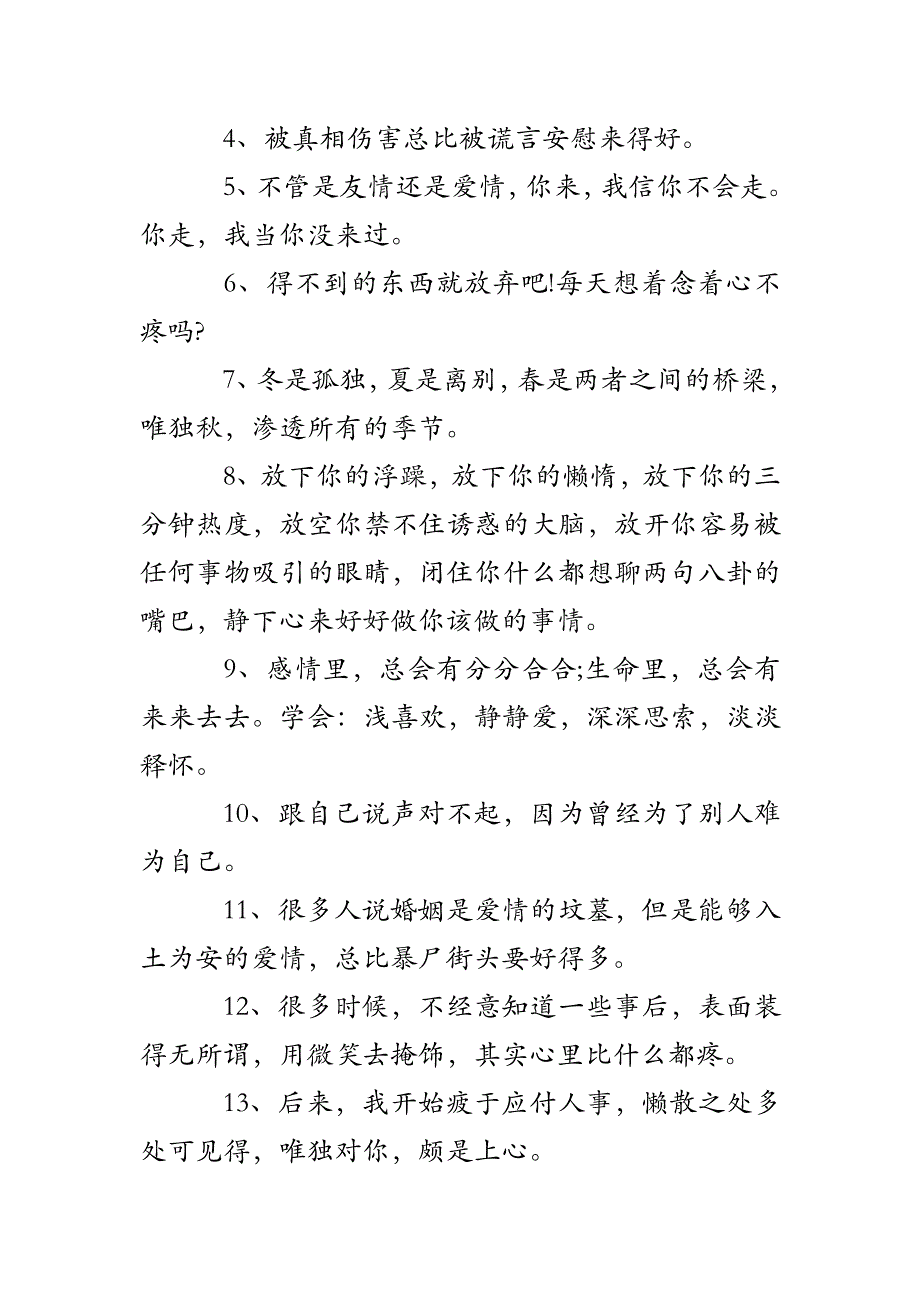 4、被真相伤害总比被谎言安慰来得好。
5、不管是友情还是爱情，你来，我信你不会走。
你走，我当你没来过。
6、得不到的东西就放弃吧!每天想着念着心不
疼吗?
7、冬是孤独，夏是离别，春是两者之间的桥梁，
唯独秋，渗透所有的季节。
8、放下你的浮躁，放下你的懒惰，放下你的三
分钟热度，放空你禁不住诱惑的大脑，放开你容易被
任何事物吸引的眼睛，闭住你什么都想聊两句八卦的
嘴巴，静下心来好好做你该做的事情。
9、感情里，总会有分分合合;生命里，总会有
来来去去。学会：浅喜欢，静静爱，深深思索，淡淡
释怀。
10、跟自己说声对不起，因为曾经为了别人难
为自己。
11、很多人说婚姻是爱情的坟墓，但是能够入
土为安的爱情，总比暴尸街头要好得多。
12、很多时候，不经意知道一些事后，表面装
得无所谓，用微笑去掩饰，其实心里比什么都疼。
13、后来，我开始疲于应付人事，懒散之处多
处可见得，唯独对你，颇是上心。